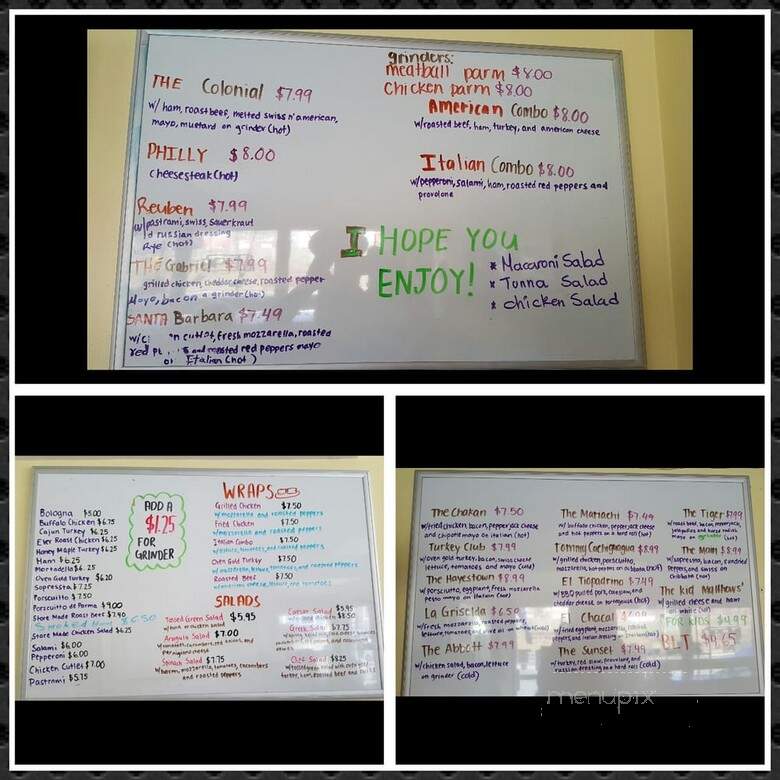 THE Colonial $7.99
w/ ham, roast beef, melted swiss n' american,
mayo, mustard on grinder (hot)
PHILLY $8.00
cheesesteak (hot)
Reuben $7.99
w/pastrami, swiss, sauerkraut
russian dressing
Rye (hot)
THE Gabriel $7.99
grilled chicken, cheddar cheese, roasted pepper
Mayo, bacon a grinder (hot)
SANTA Barbara $7.49
cutlet, fresh mozzarella, roasted
red and roasted red peppers mayo
Italian (hot)
grinders:
meatball parm $8.00
chicken parm $8.00
American Combo $8.00
w/roasted beef, ham, turkey, and american cheese
Italian Combo $8.00
w/pepperoni, salami, ham, roasted red peppers and
provolone
I HOPE YOU
ENJOY!
* Macaroni Salad
* Tunna Salad
* chicken Salad
Bologna $5.00
Buffalo Chicken $6.75
Cajun Turkey $6.25
Ever Roast Chicken $6.25
Honey Maple Turkey $6.25
Ham $6.25
Mortadella $6.25
Sopresata $7.25
Oven Gold Turkey $6.20
Porscuitto $7.50
Porscuitto de Parma $9.00
Store Made Roast Beef $7.40
$6.50
Store Made Chicken Salad $6.25
Salami $6.00
Pepperoni $6.00
Chicken Cutlet $7.00
Pastrami $5.75
ADD A
$1.25
FOR
GRINDER
WRAPS
Grilled Chicken $7.50
w/mozzarella and roasted peppers
Fried Chicken $7.50
w/mozzarella and roasted peppers
Italian Combo $7.50
w/lettuce, tomatoes, and roasted peppers
Oven Gold Turkey $7.50
w/mozzarella, lettuce, tomatoes, and roasted peppers
Roasted Beef $7.50
cheese, lettuce, and tomatoes
SALADS
Tossed Green Salad $5.95
Arugula Salad $7.00
Spinach Salad $7.75
w/bacon, mozzarella, tomatoes, cucumbers
and roasted peppers
Caesar Salad $5.95
$8.50
Greek Salad $7.75
Chef Salad $8.25
turkey, ham, roasted beef and
The Chakan $7.50
w/fried chicken, bacon, pepperjack cheese
and chipotle mayo on italian (hot)
Turkey Club $7.99
w/oven gold turkey, bacon, swiss cheese
lettuce, tomatoes, and mayo (cold)
The Hayestown $8.99
w/porsciutto, eggplant, fresh mozzarella
pesto mayo on italian (hot)
La Griselda $6.50
w/fresh mozzarella, roasted peppers,
lettuce, tomatoes, (cold)
The Abbott $7.99
w/chicken salad, bacon, lettuce
on grinder (cold)
The Mariachi $7.49
w/ buffalo chicken, pepperjack cheese
and hot peppers on a hard roll (hot)
Tommy $8.99
w/grilled chicken, porscuitto,
mozzarella, hot peppers on
El Tiopadrino $7.49
w/BBQ pulled pork, and
cheddar cheese on (hot)
El Chacal
w/fried eggplant,
The Sunset $7.49
w/turkey, red slaw, provolone, and
russian dressing on a hard roll (cold)
The Tiger $7.99
w/roast beef, bacon, pepperjack,
mayo on (hot)
The Main $8.99
w/supresata, bacon,
peppers, and swiss on
(hot)
The kid Matthews'
w/grilled cheese and ham
FOR KIDS $4.99
BLT $4.65
menupix